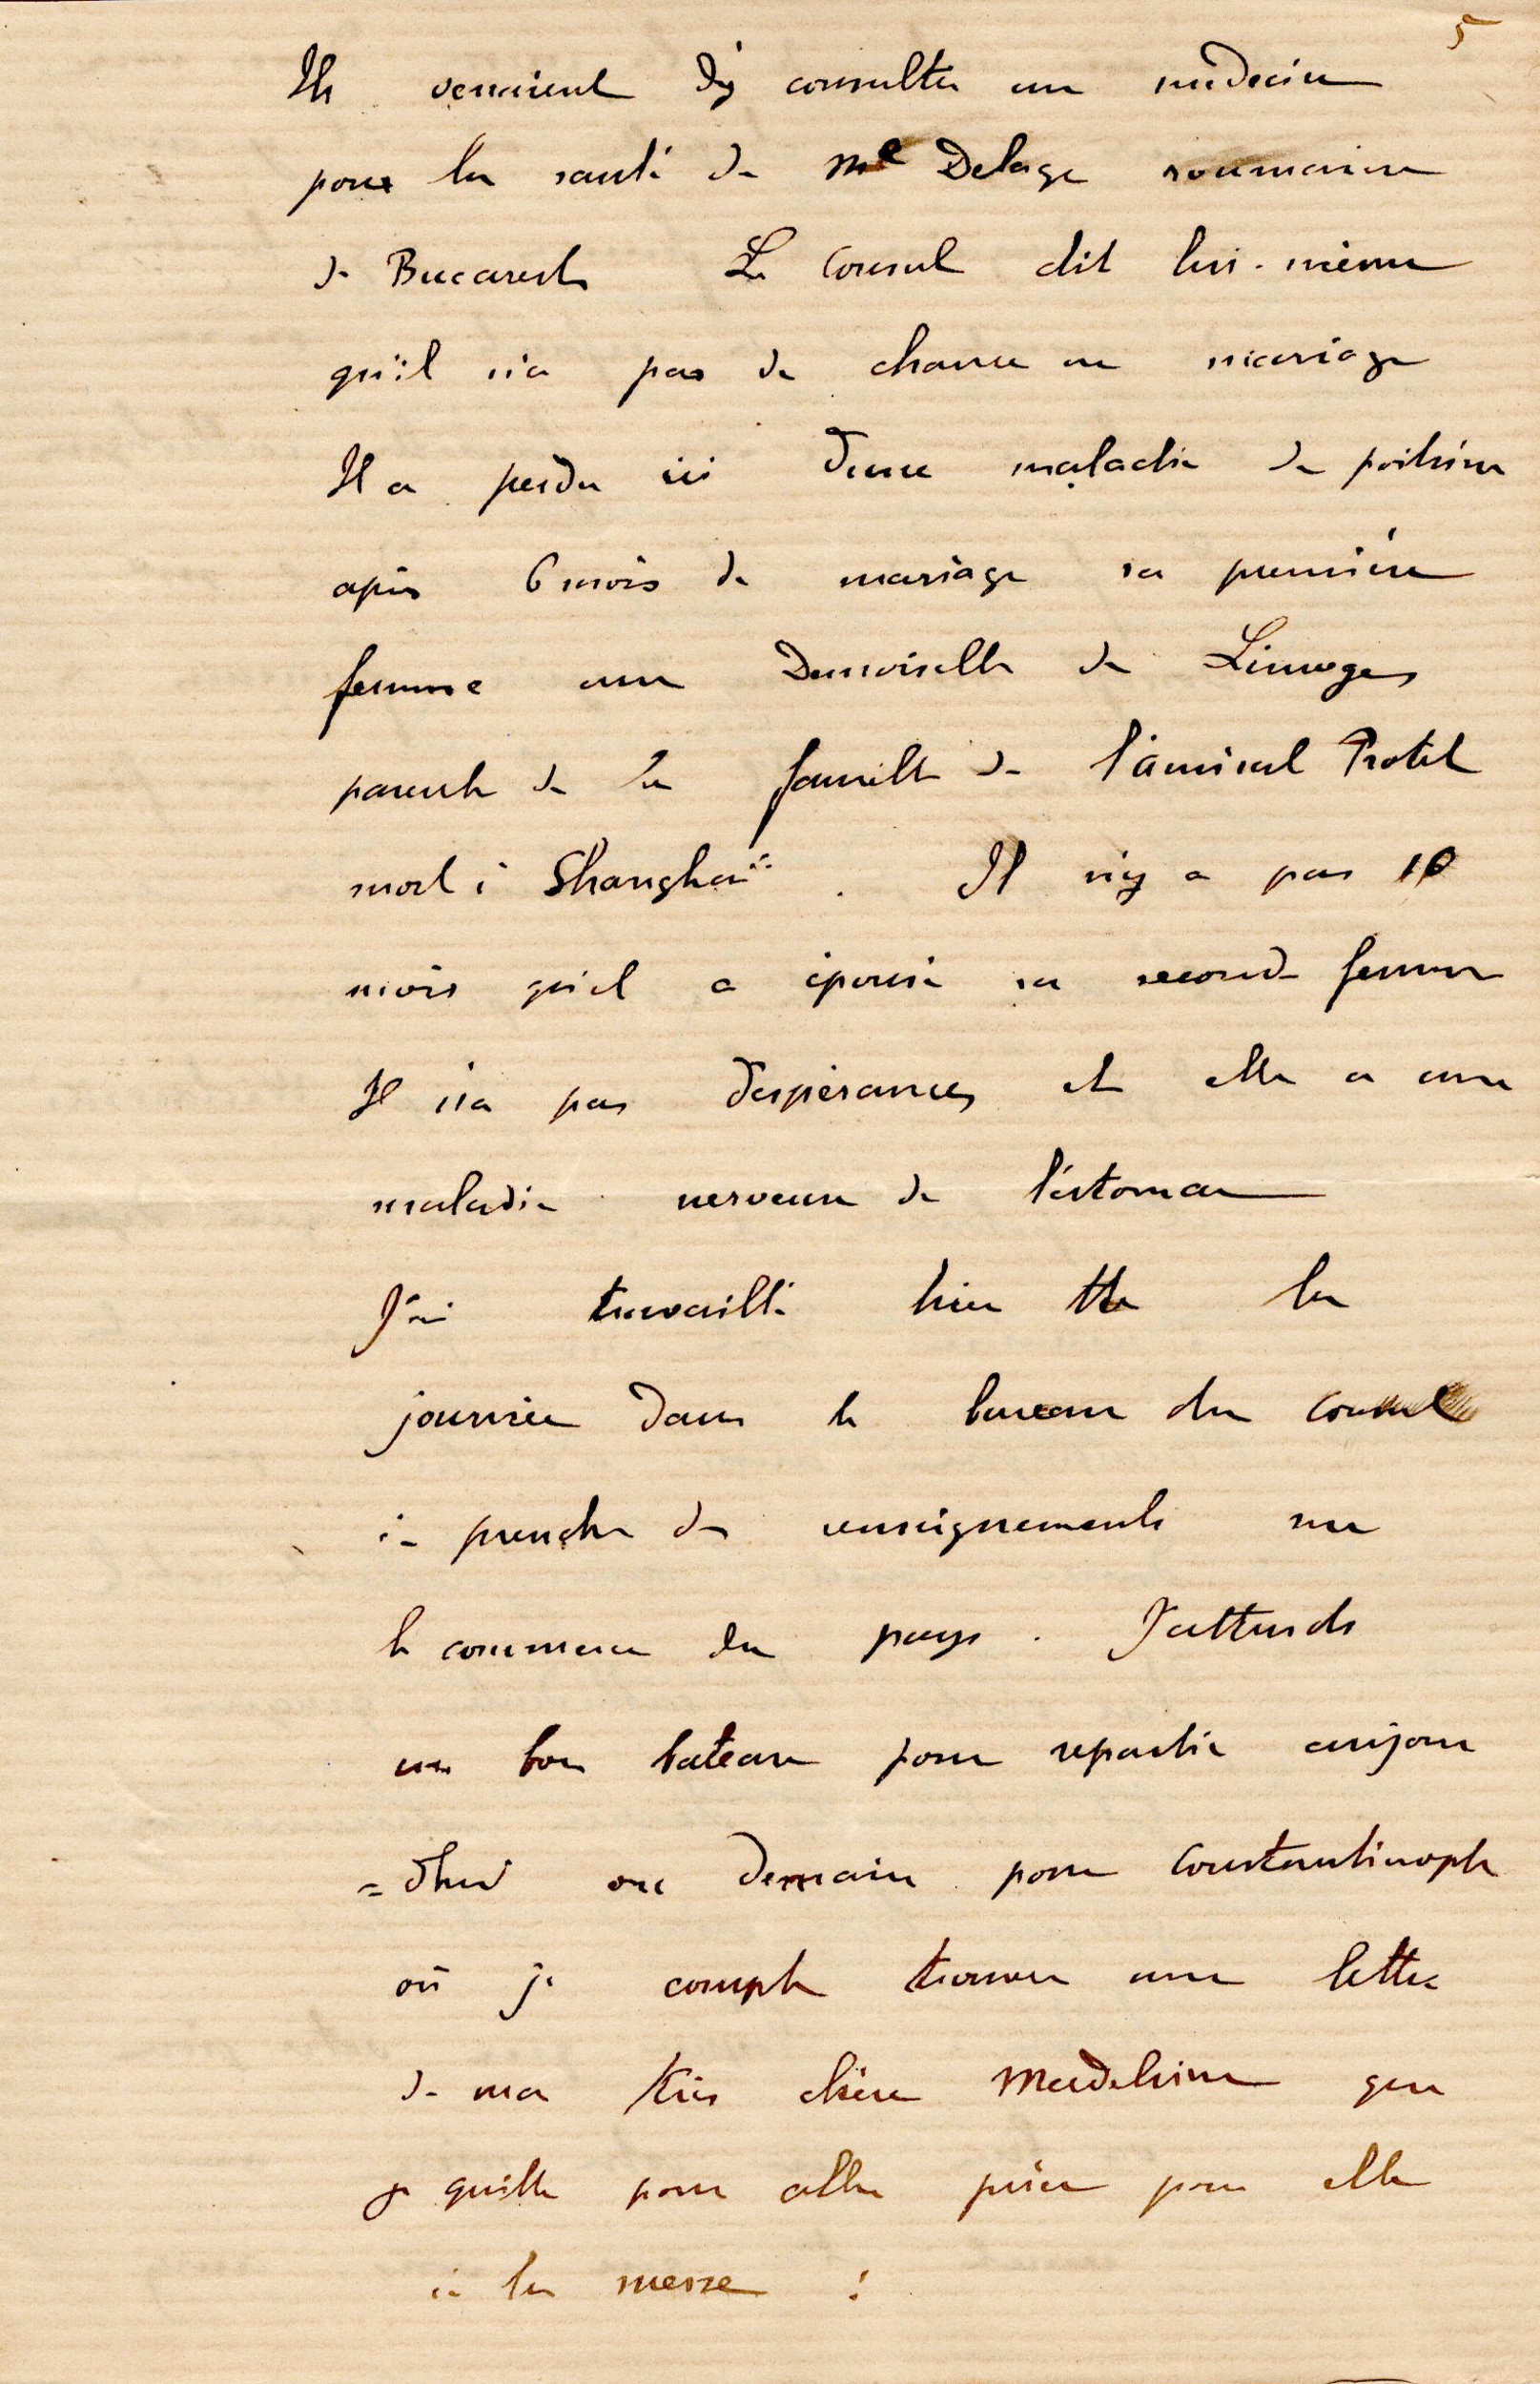 5
Ils venaient d'y consulter un médecin
pour la santé de Me Delage roumaine
de Bucarest Le Consul dit lui-même
qu'il n'a pas de chance en mariage
Il a perdu ici d'une maladie de poitrine
après 6 mois de mariage sa première
femme une Demoiselle de Limoges
parente de la famille de l'amiral Protet
mort à Shanghaï. Il n'y a pas 10
mois qu'il a épousé sa seconde femme
Il n'a pas d'espérances et elle a une
maladie nerveuse de l'estomac
J'ai travaillé hier tte la
journée dans le bureau du Consul
à prendre des renseignements sur
le commerce du pays. J'attends
un bon bateau pour repartir aujour
=d'hui ou demain pour Constantinople
où je compte trouver une lettre
de ma très chère Madeleine que
je quitte pour aller prier pour elle
à la messe !